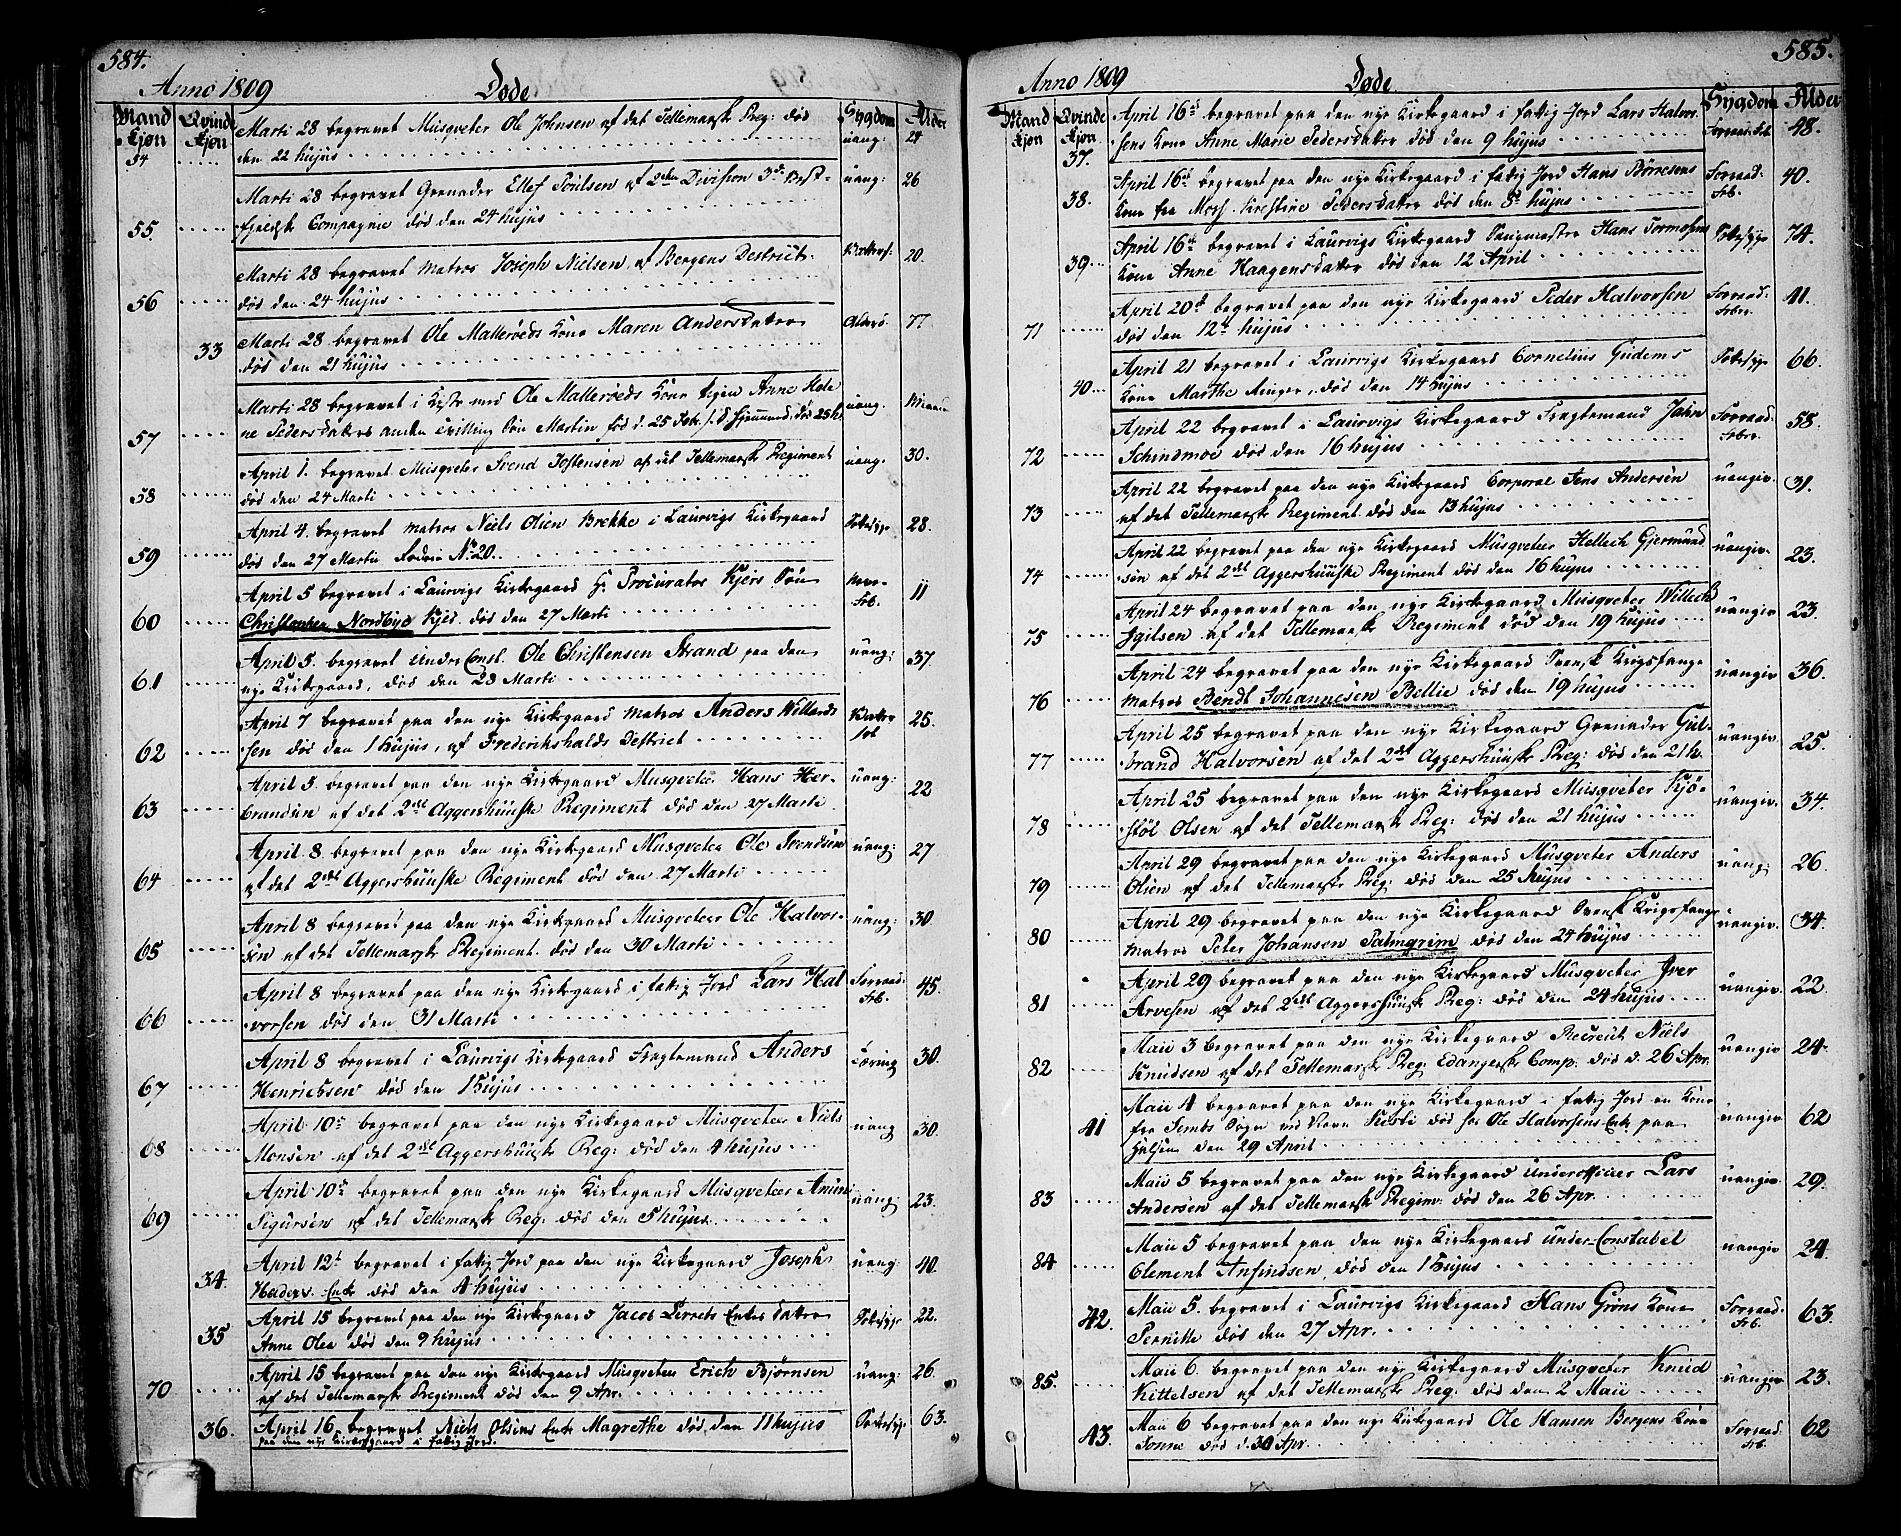 584.
Anno 1809 Døde
Mand kjøn Qvinde kjøn Sygdom Alder
54 Marti 28 begravet Musqveter Ole Johnsen af det Tellemarsk Reg: død uang: 28
den 22 hujus
Marti 28 begravet Grenader Ellef Poulsen af 2den Division 3de Vest- uang: 26
55 fjeldsk Compagnie død den 24 hujus
Marti 28 begravet Matros Joseph Nielsen, af Bergens Destrict 20.
56 død den 24 hujus
33 Marti 28 begravet Ole Mallerøeds Kone Maren Andersdatter 77
død den 21 hujus
Marti 28 begravet i Kiste med Ole Mallerøeds Kone Pigen Anne Hele uang.
57 ne Pedersdatters Søn Martin død 25 h.
April 1. begravet Musqveter Svend Jostensen af det Tellemarsk Regiment uang. 30.
58 død den 24 Marti
April 4 begravet Matros Niels Olsen Brekke i Laurvigs Kirkegaard 28.
59 død den 27 Martii No 20.
April 5 begravet i Laurvigs Kirkegaard Hr Procurator Kjers Søn 11
60 Christopher Nordbye Kjer død den 27 Marti
April 5. begravet Under Const. Ole Christensen Strand paa den uang: 37.
61 nye Kirkegaard, død den 28 Marti
April 7 begravet paa den nye Kirkegaard Matros Anders Willards 25.
62 sen død den 1 hujus, af Frederikshalds Destrict
April 5 begravet paa den nye Kirkegaard Musqveter Hans Her- uang: 22
63 brandsen af det 2det Aggershuuske Regiment død den 27 Marti
April 8 begravet paa den nye Kirkegaard Musqveter Ole Svendsen uang: 27
64 af det 2det Aggershuuske Regiment død den 27 Marti
April 8 begravet paa den nye Kirkegaard Musqveter Ole Halvor- uang: 30
65 sen af det Tellemarsk Regiment død den 30 Marti
April 8 begravet paa den nye Kirkegaard i fattig Jord Lars Hal Forraad- Feb. 45.
66 vorsen død den 31 Marti
April 8 begravet i Laurvigs Kirkegaard Fragtemand Anders Tæring 30.
67 Henrichsen død den 1 hujus
April 10de begravet paa den nye Kirkegaard Musqveter Niels uang 30.
68 Monsen af det 2det Aggershuusk Reg: død den 4 hujus
April 10de begravet paa den nye Kirkegaard Musqveter Amun uang: 23.
69 Sigursen af det Tellemarsk Reg: død den 5 hujus
April 12te begravet i fattig Jord paa den nye Kirkegaard Joseph uang: 40.
34 Enke død den 4 hujus
April 15 begravet paa den nye Kirkegaard Jacob Enkes Datter 22.
35 Anne Olea død den 9 hujus
April 15 begravet paa den nye Kirkegaard Musqveter Erich Bjørnsen uang: 26.
70 af det Tellemarsk Regiment død den 9 Apr.
36. April 16. begravet Niels Olsens Enke Magrethe død den 11 hujus 63.
paa den nye Kirkegaard i fattig Jord.
585.
Anno 1809 Døde
Mand kjøn Qvinde kjøn Sygdom Alder
April 16de begravet paa den nye Kirkegaard i fattig Jord Lars Halvor- Forraad. Feb. 48.
37. sens Kone Anne Marie Pedersdatter død den 9 hujus
April 16de begravet paa den nye Kirkegaard i fattig Jord Hans Børresens Forraad- Feb. 40.
38. Kone fra Moss Kirstine Pedersdatter død den 8de hujus
April 16de begravet i Laurvigs Kirkegaard Hans Tormosens 74.
39 Kone Anne Haagensdatter død den 12 April
April 20de begravet paa den nye Kirkegaard Peder Halvorsen Forraad- Feber. 41.
71 død den 12te hujus
April 21 begravet i Laurvigs Kirkegaard Cornelius Gudems 66.
40 Kone Marthe Ringer, død den 14 hujus
April 22 begravet i Laurvigs Kirkegaard Fragtemand Jahn Forraad- Feber. 58.
72 Schindmoe død den 16 hujus
April 22 begravet paa den nye Kirkegaard Corporal Jens Andersen uangiv. 31.
73 af det Tellemarsk Regiment død den 13 hujus
April 22 begravet paa den nye Kirkegaard Musqveter Hellech Gjermund uangiv. 23.
74 sen af det 2det Aggershuuske Regiment død den 16 hujus
April 24 begravet paa den nye Kirkegaard Musqveter Willech uangiv. 23.
75 Igilsen af det Tellemarsk Regiment død den 19 hujus
April 24 begravet paa den nye Kirkegaard Svensk Krigsfange uangiv 36.
76 Matros Bendt Johannesen Bellie død den 19 hujus
April 25 begravet paa den nye Kirkegaard Grenader Gul- uangiv. 25.
77 brand Halvorsen af det 2det Aggershuusk Reg: død den 21 h.
April 25 begravet paa den nye Kirkegaard Musqveter Kjø- uangiv. 34.
78 støl Olsen af det Tellemarsk Reg: død den 21 hujus
April 29 begravet paa den nye Kirkegaard Musqveter Anders uang: 26.
79 Olsen af det Tellemarsk Reg: død den 25 hujus
April 29 begravet paa den nye Kirkegaard Svensk Krigsfange uangiv. 34.
80 Matros Peter Johansen Palmgrim død den 24 hujus
April 29 begravet paa den nye Kirkegaard Musqveter Iver uangiv. 22.
81 Arvesen af det 2det Aggershuusk Reg: død den 24 hujus
Maii 3 begravet paa den nye Kirkegaard Recreut Niels uangiv 24.
82 Knudsen af det Tellemarsk Reg: Edangerske Comp: død d. 26 Apr.
Maii 4 begravet paa den nye Kirkegaard i fattig Jord en Kone uangiv 62
41 fra Sembs Sogn ved Navn død hos Ole Halvorsens Enke paa
den 29 April
Maii 5 begravet paa den nye Kirkegaard Underofficier Lars uangiv. 29.
83 Andersen af det Tellemarsk Regim: død den 26 Apr.
Maii 5 begravet paa den nye Kirkegaard Under-Constabel uangiv 24.
84 Clement Anfindsen, død den 1 hujus
Maii 5. begravet i Laurvigs Kirkegaard Hans Grøns Kone Forraad- Feb. 63.
42. Pernille død den 27 Apr.
Maii 6. begravet paa den nye Kirkegaard Musqveter Knud uangiv 23.
85. Kittelsen af det Tellemarsk Reg: død den 2 Maii
Maii 6 begravet paa den nye Kirkegaard Ole Hansen Bergens Kone Forraad- Feb. 62
43. Tonne død d. 30 Apr.